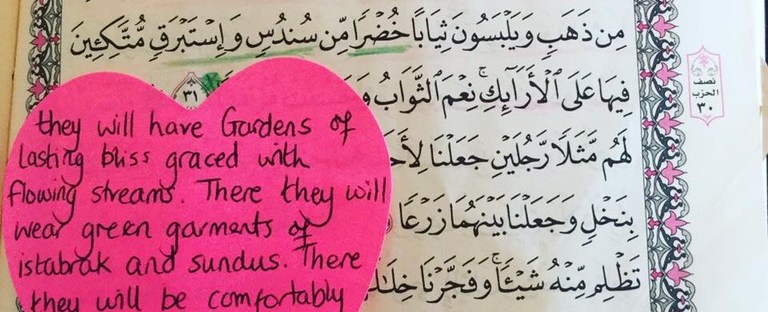 مِن ذَهَبٍ وَيَلْبَسُونَ ثِيَابًا خُضْرًا مِّن سُندُسٍ وَإِسْتَبْرَقٍ مُّتَّكِـِٔينَ
فِيهَا عَلَى ٱلْأَرَآئِكِ ۚ نِعْمَ ٱلثَّوَابُ ٣١
لَهُم مَّثَلًا رَّجُلَيْنِ جَعَلْنَا
بِنَخْلٍ وَجَعَلْنَا بَيْنَهُمَا زَرْعًا
تَظْلِم مِّنْهُ شَيْـًٔا ۚ وَفَجَّرْنَا
نصف
الحزب
٣٠
they will have Gardens of
lasting bliss graced with
flowing streams. There they will
wear green garments of
istabrak and sundus. There
they will be comfortably